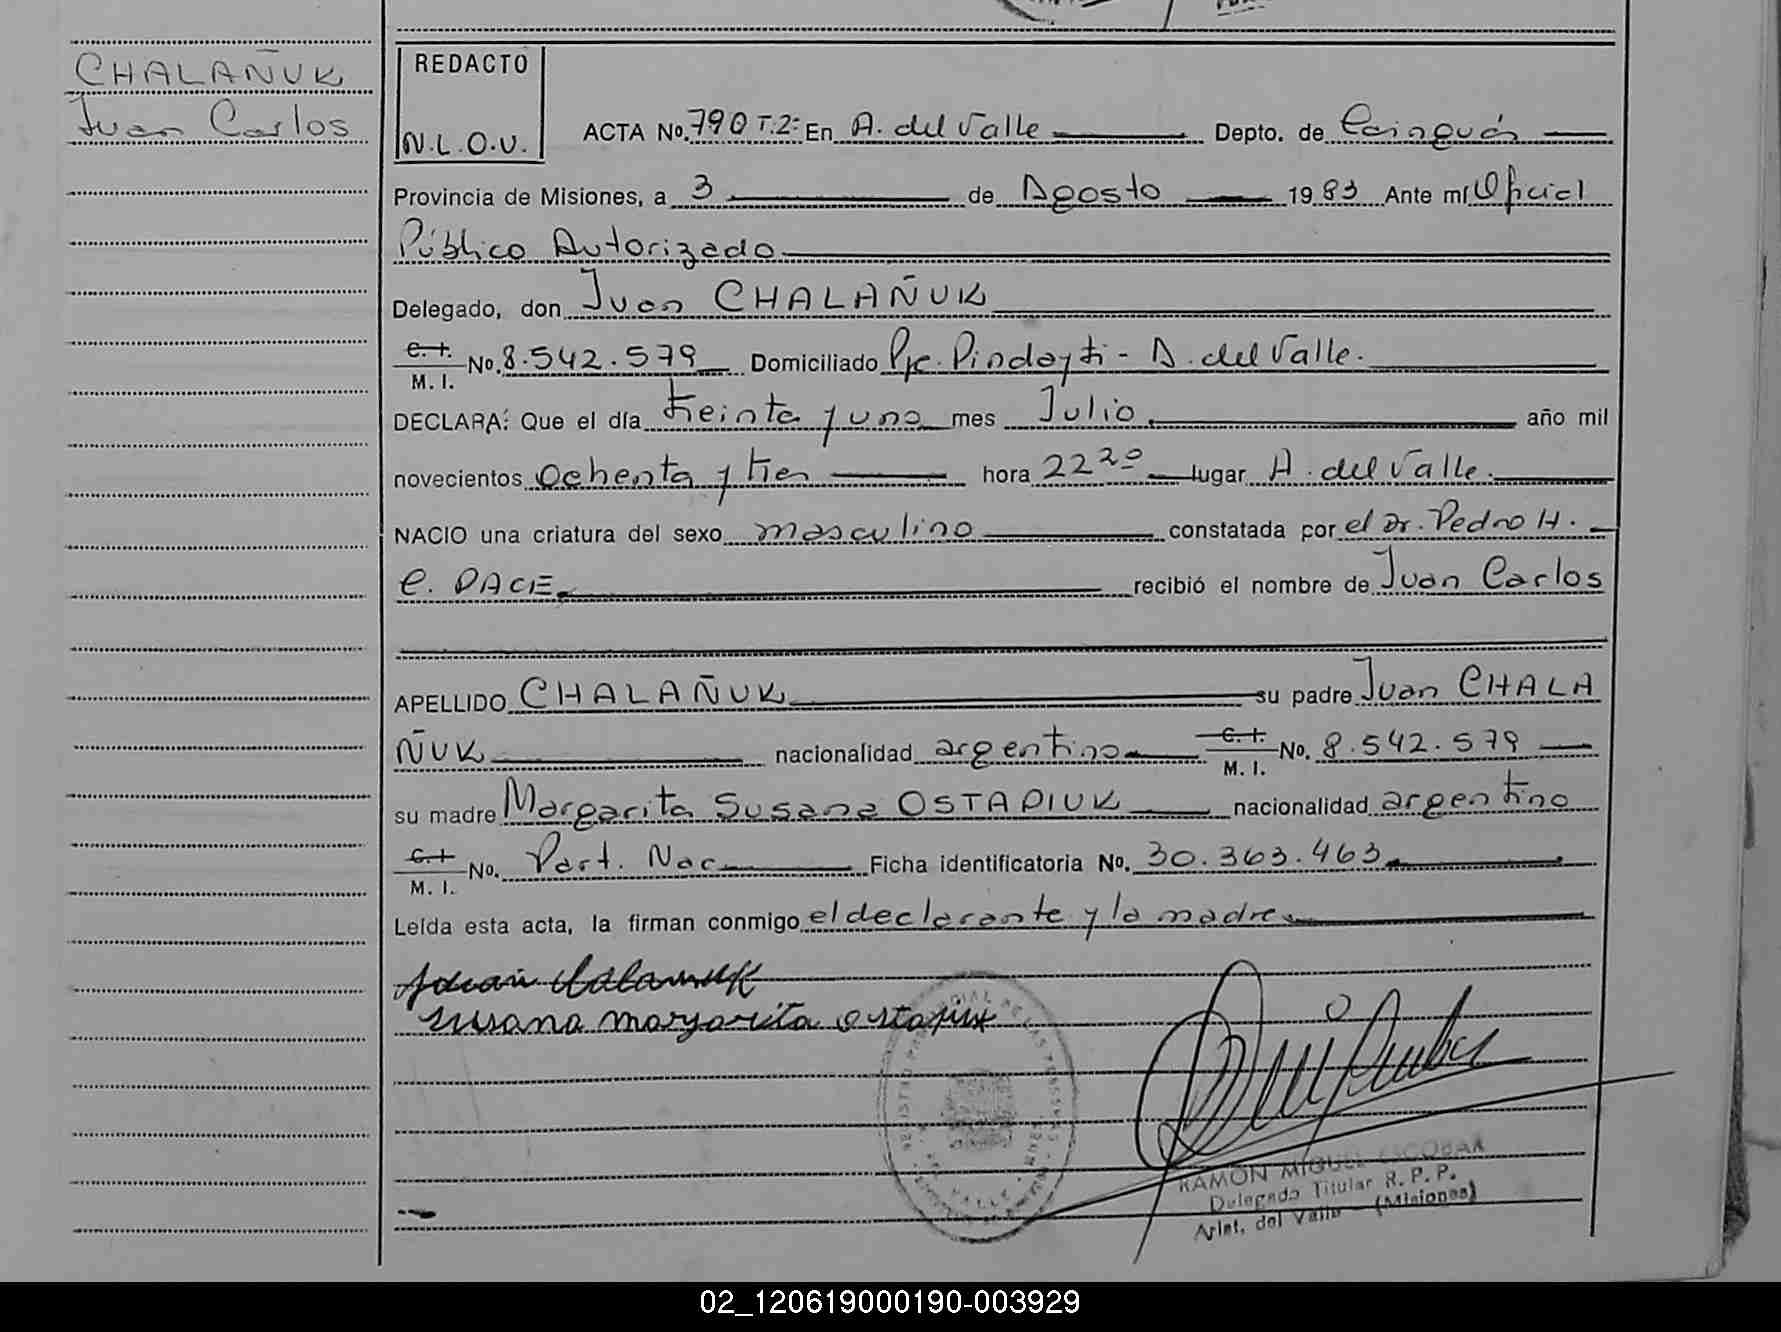 CHALAÑUK
Juan Carlos
REDACTO
N.L.O.V.
ACTA No. 790 T.2º En A. del Valle Depto. de Cainguás
Provincia de Misiones, a 3 de Agosto 1983 Ante mí Oficial
Público Autorizado
Delegado, don Juan CHALAÑUK
C. I. M. I. No. 8.542.579 Domiciliado Pje. Pindayti - A. del Valle.
DECLARA: Que el día treinta y uno mes Julio año mil
novecientos ochenta y tres hora 22 20 lugar A. del Valle.
NACIO una criatura del sexo masculino constatada por el Dr. Pedro H.
C. PACE recibió el nombre de Juan Carlos
APELLIDO CHALAÑUK su padre Juan CHALA
ÑUK nacionalidad argentino C. I. M. I. No. 8.542.579
su madre Margarita Susana OSTAPIUK nacionalidad argentino
C. I. M. I. No. Part. Nac. Ficha identificatoria No. 30.363.463
Leída esta acta, la firman conmigo el declarante y la madre
Susana margarita
RAMON MIGUEL ESCOBAR
Delegado Titular R. P. P.
Arist. del Valle (Misiones)
02_120619000190-003929